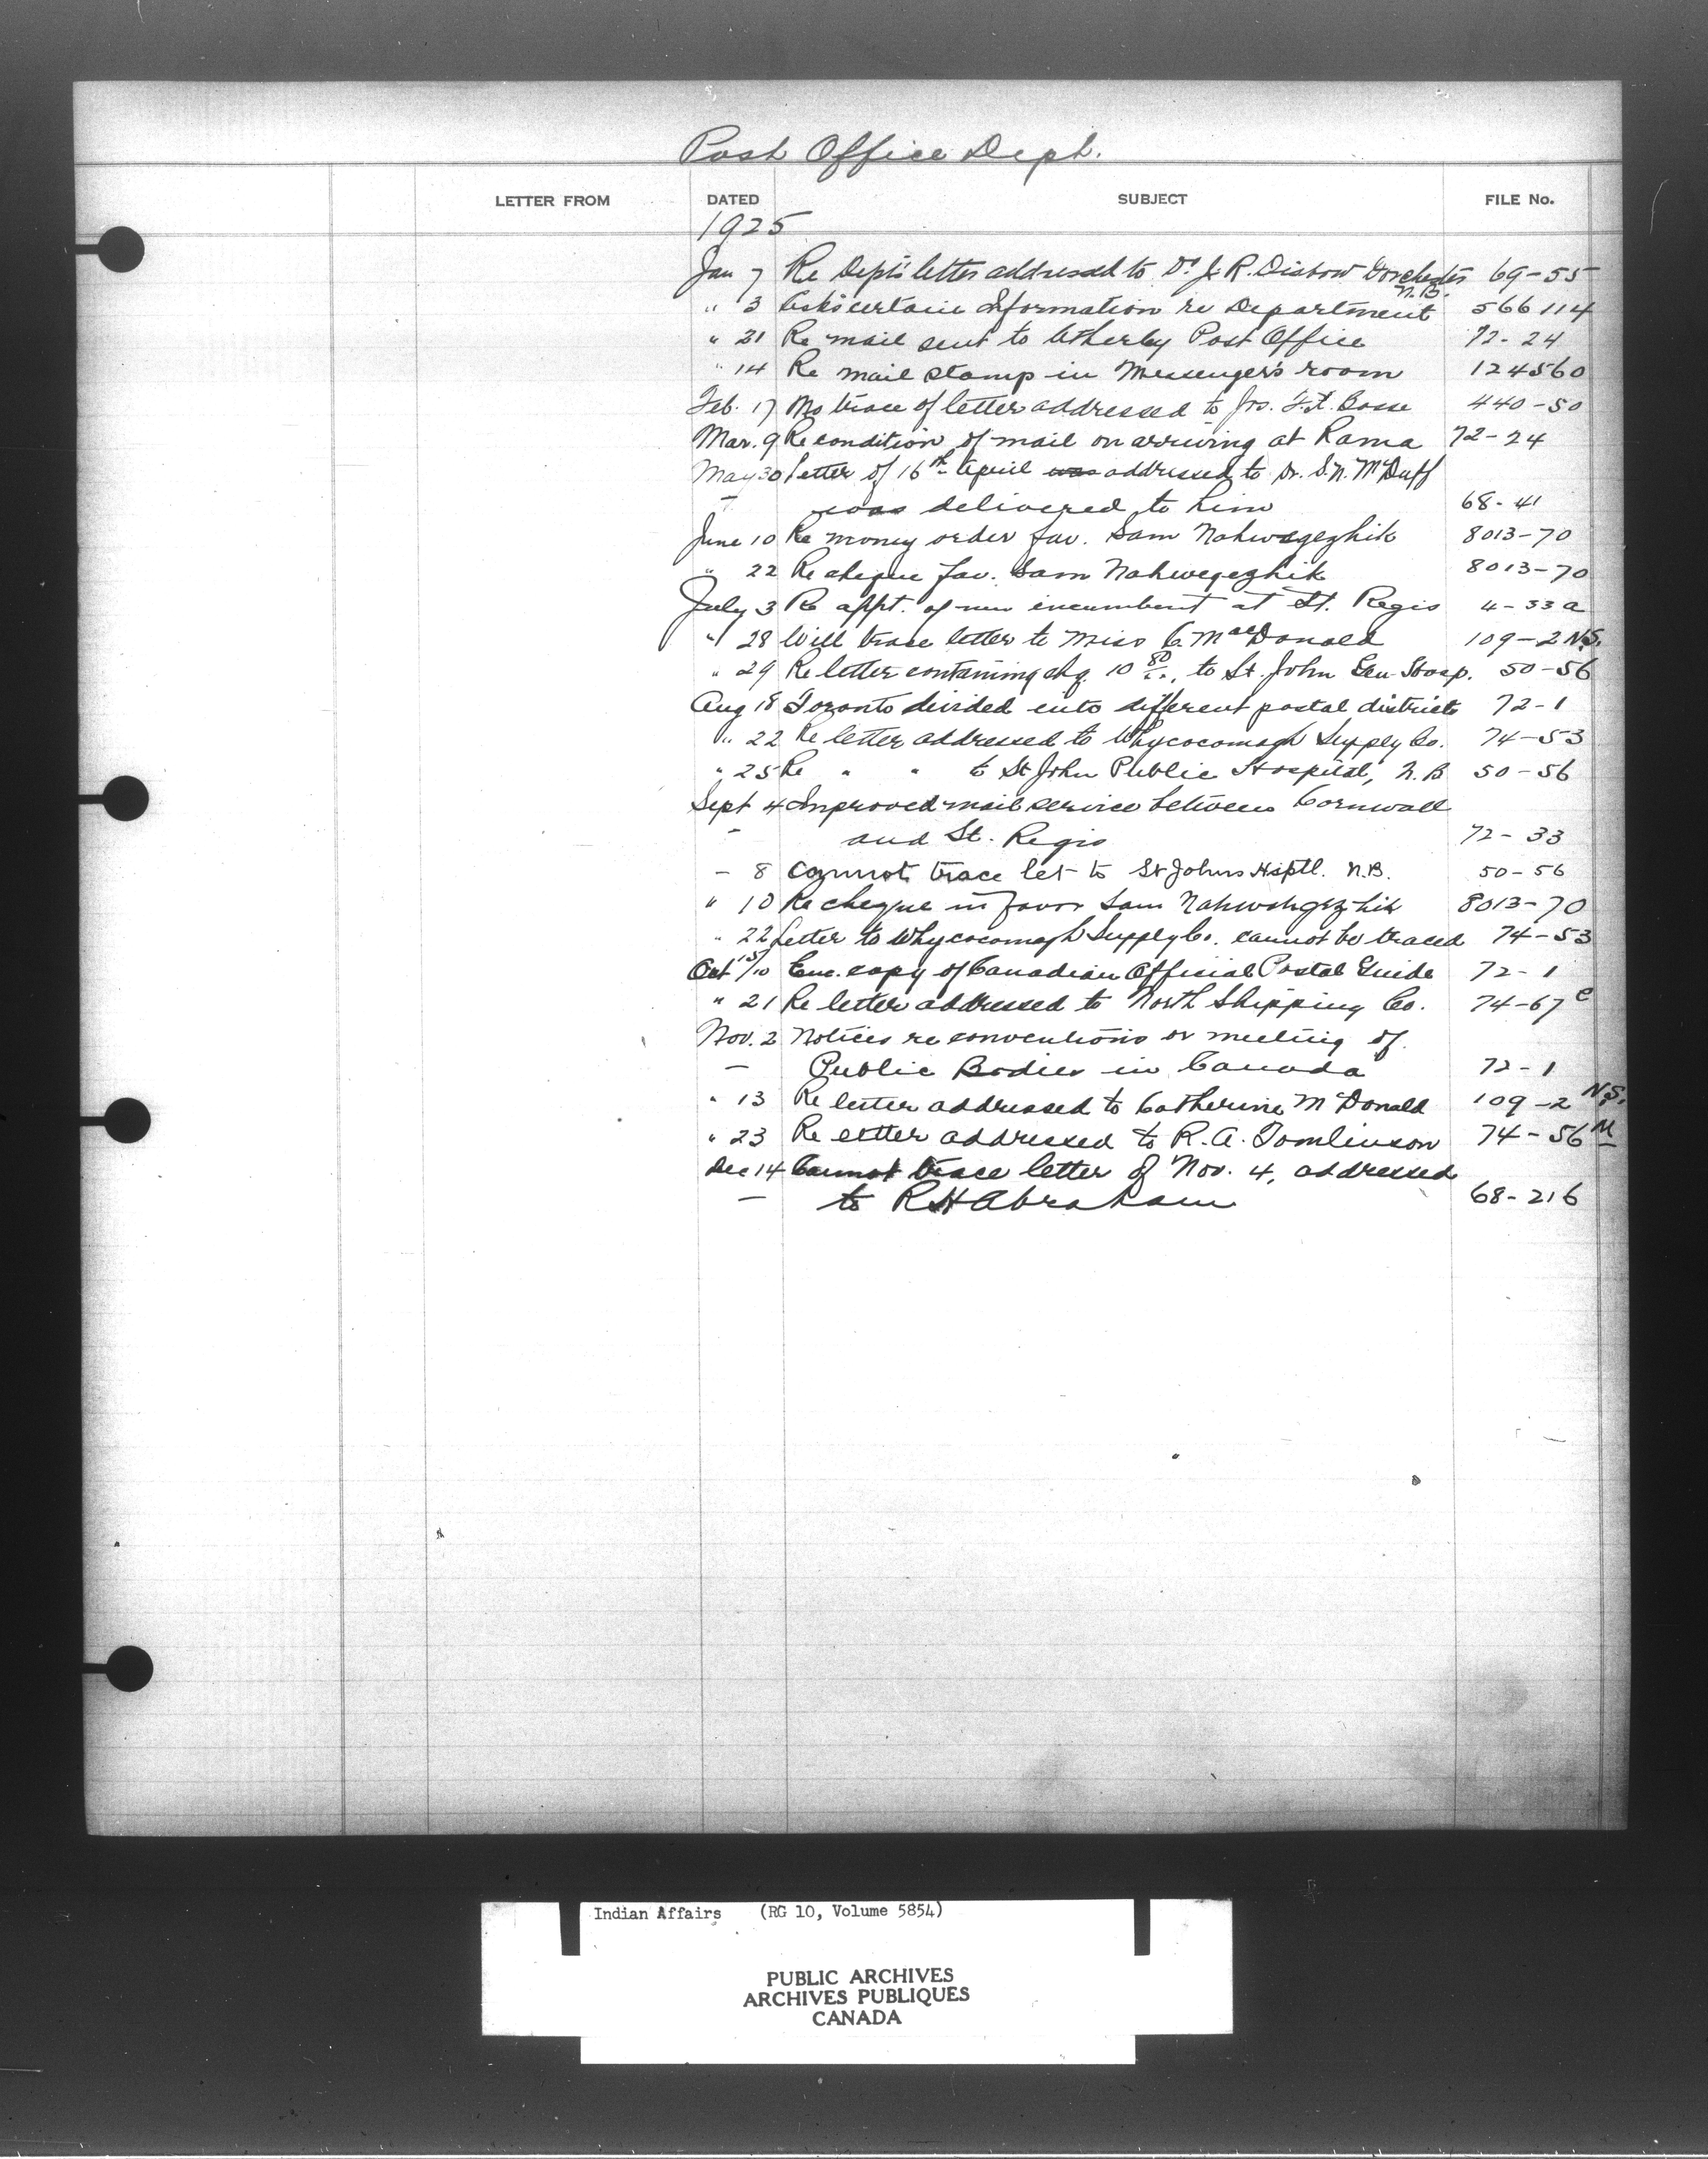 Post Office Dept.
LETTER FROM DATED SUBJECT FILE No.
1925
Jan 7 Re Dept's letter addressed to Dr J. R. Disbow Dorchester 69-55
N.B.
" 3 Asks certain information re Department 566114
" 21 Re mail sent to Atherley Post Office 72-24
" 14 Re mail stamp in Messenger's room 124560
Feb. 17 No trace of letter addressed to Jos. Bosse 440-50
Mar. 9 Re condition of mail on arriving at Rama 72-24
May 30 Letter of 16th April was addressed to Dr. S.N. McDuff
- was delivered to him 68-41
June 10 Re money order fav. Sam Nahwegezhik 8013-70
" 22 Re cheque fav. Sam Nahwegezhik 8013-70
July 3 Re appt. of new incumbent at St. Regis 4-33a
" 28 Will trace letter to Miss C. MacDonald 109-2 N.S.
" 29 Re letter containing chq. 10 80, to St. John Gen. Hosp. 50-56
Aug 18 Toronto divided into different postal districts 72-1
" 22 Re letter addressed to Whycocomagh Supply Co. 74-53
" 25 Re " " to St John Public Hospital, N.B 50-56
Sept 4 Improved mail service between Cornwall
- and St. Regis 72-33
- 8 Cannot trace let to St Johns Hsptl. N.B. 50-56
" 10 Re cheque in favor Sam Nahwohgezhik 8013-70
" 22 Letter to Whycocomagh Supply Co. cannot be traced 74-53
Oct 15/10 Enc. copy of Canadian Official Postal Guide 72-1
" 21 Re letter addressed to North Shipping Co. 74-67 c
Nov. 2 Notices re conventions or meeting of
- Public Bodies in Canada 72-1
" 13 Re letter addressed to Catherine McDonald 109-2 N.S.
" 23 Re letter addressed to R.A. Tomlinson 74-56 M
Dec 14 Cannot trace letter of Nov. 4, addressed
- to R H Abraham 68-216
Indian Affairs (RG 10, Volume 5854)
PUBLIC ARCHIVES
ARCHIVES PUBLIQUES
CANADA